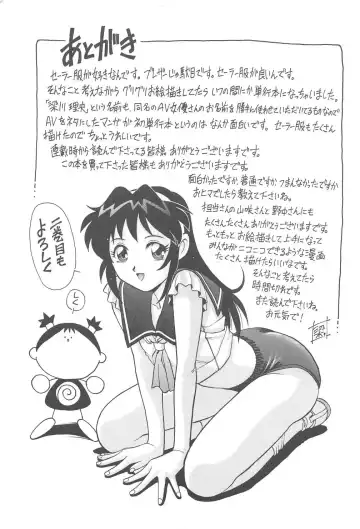 あとがき
セーラー服が好きなんです。ブレザーじゃ駄目です。セーラー服が良いんです。
そんなこと考えながらグリグリお絵描きしてたらいつの間にか単行本になっちゃいました。
「梁川理央」という名前も、同名のAV女優さんのお名前を勝手に使わせていただいてるものなので
AVをネタにしたマンガが初単行本というのはなんか面白いです。セーラー服もたくさん
描けたのでちょっとうれしいです。
連載時から読んで下さってる皆様 ありがとうございますです。
この本を買って下さった皆様もありがとうございますです。
面白かったですか、普通ですか、つまんなかったですか
おとでしたら教えて下さいね。
担当さんの山咲さんと野中さんにも
たくさんたくさんありがとうございますです。
もっともっとお絵描きして上手になって
みんながニコニコできるような漫画
たくさん描けたらいいなです。
そんなこと考えてたら
時間切れです。
また読んで下さいね。
お元気で！
二巻目も
よろしく
と